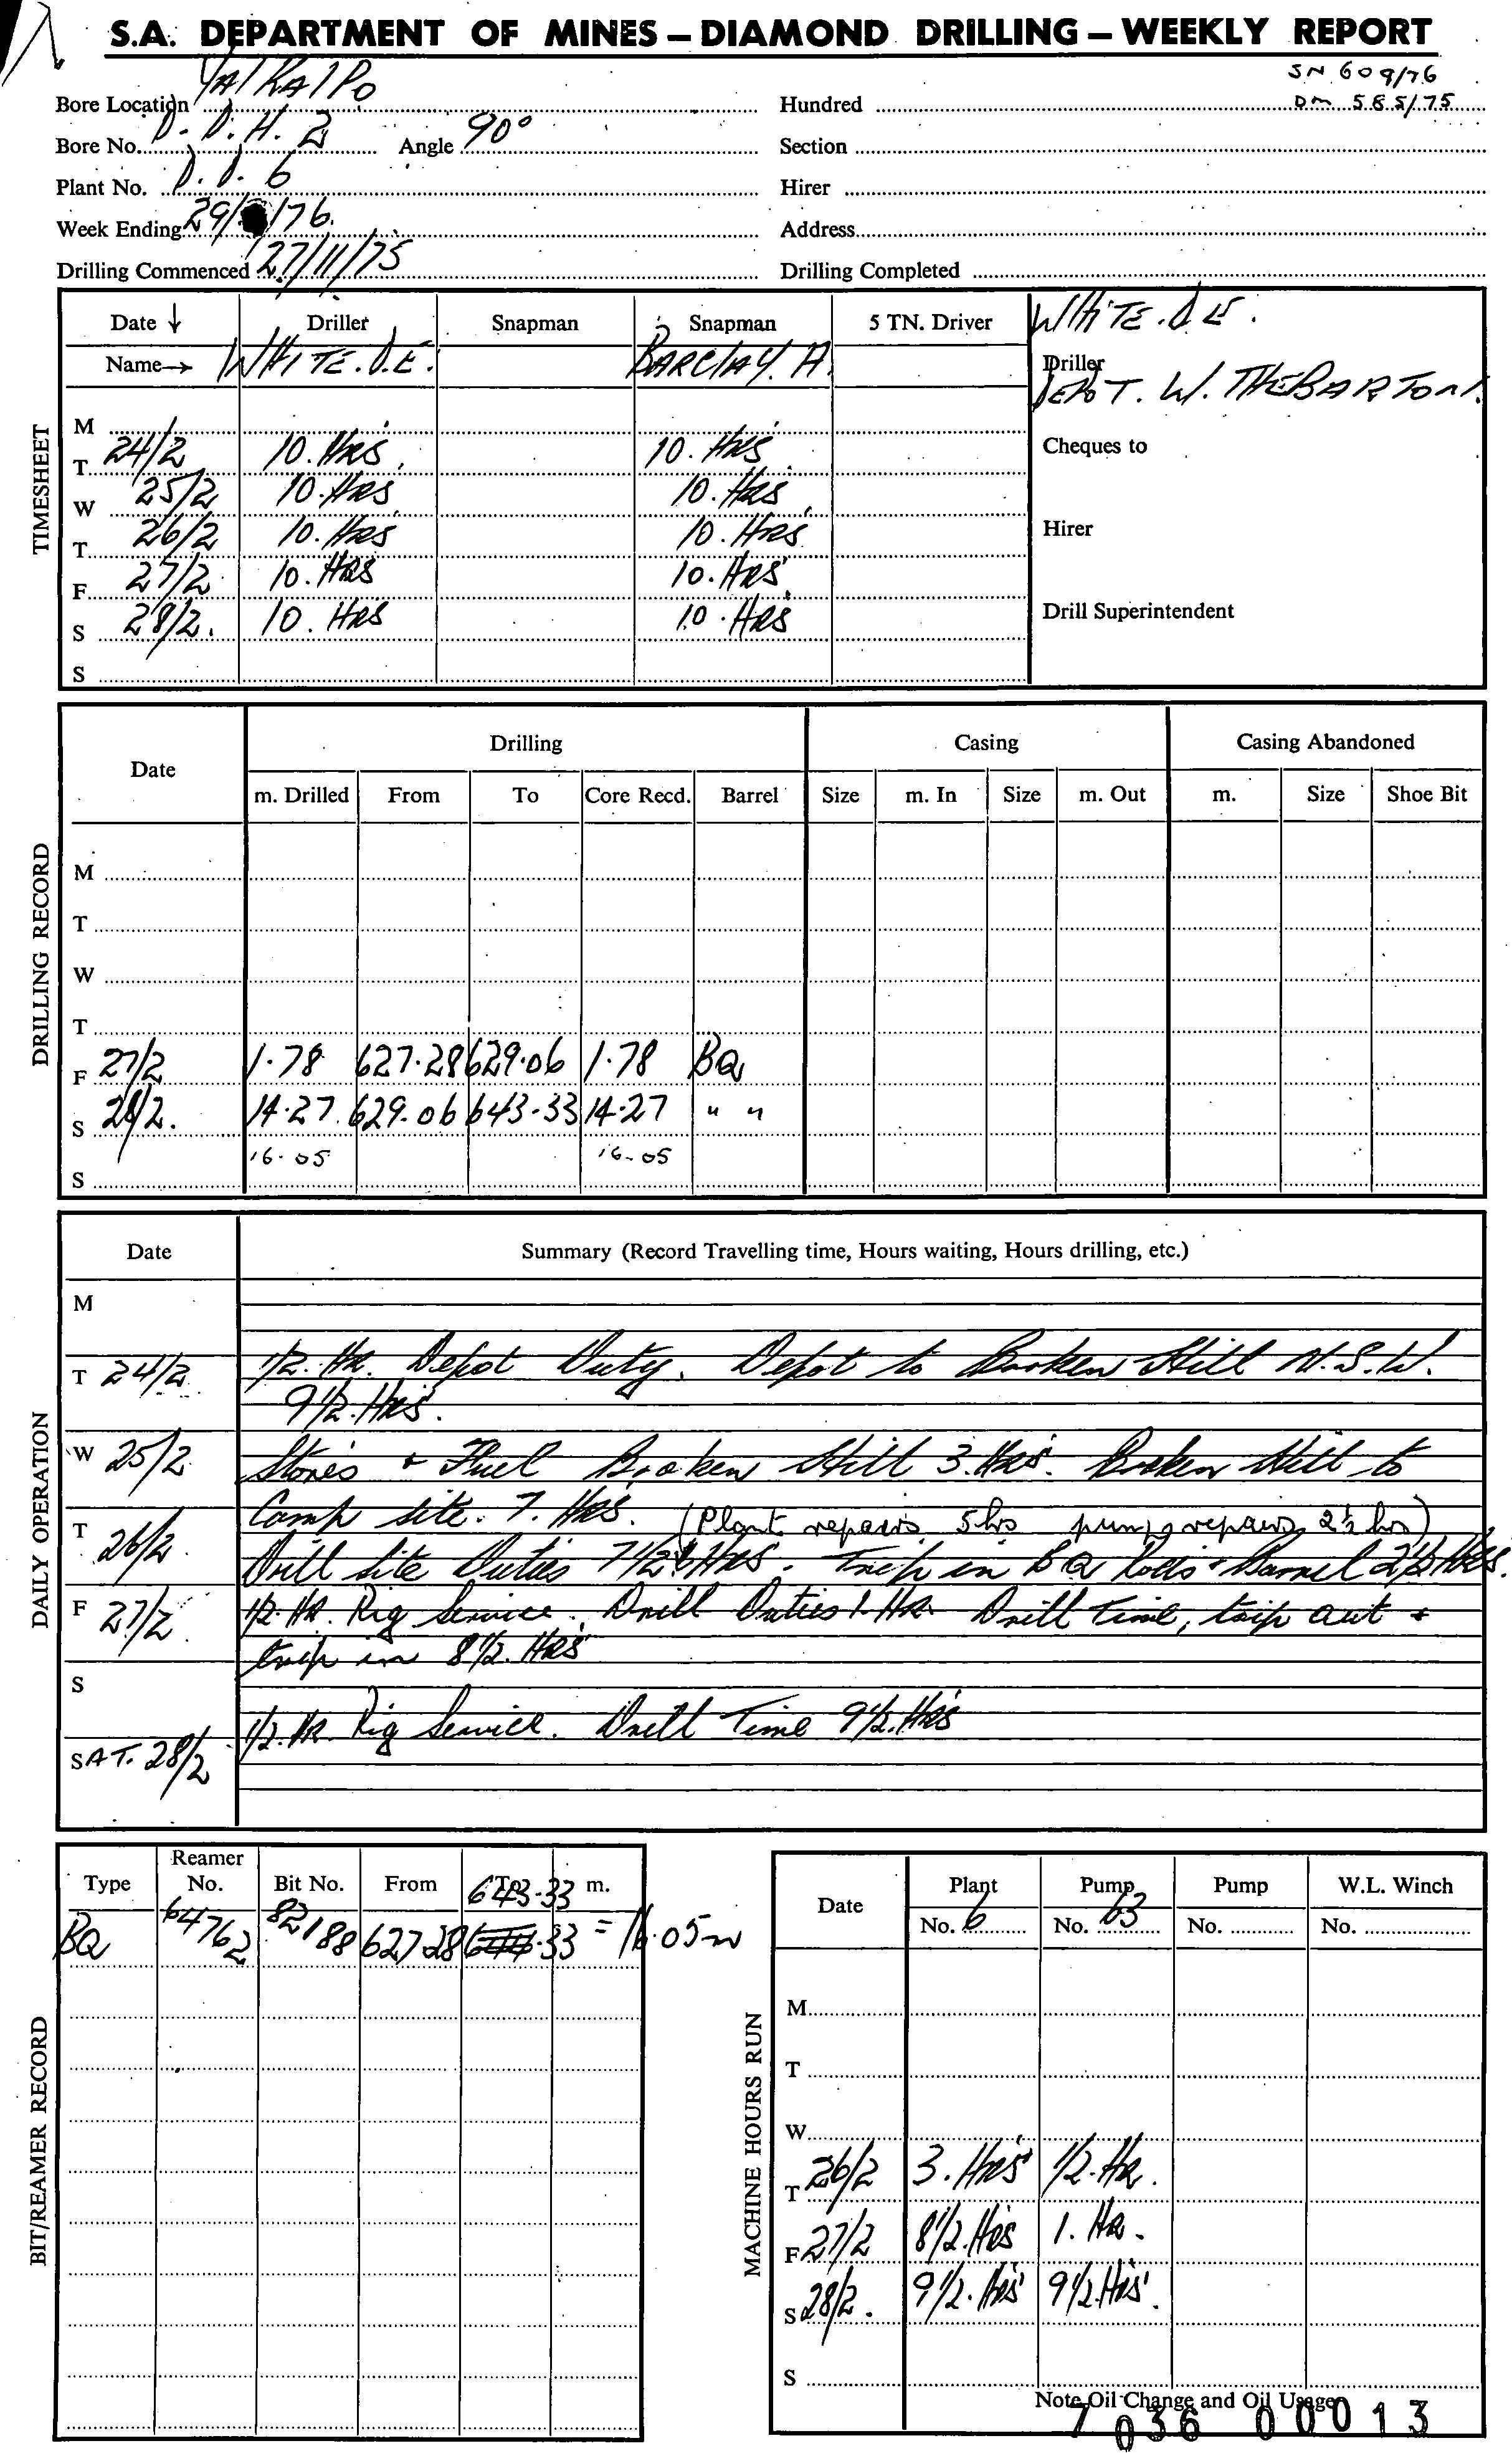 S.A. DEPARTMENT OF MINES – DIAMOND DRILLING – WEEKLY REPORT
SN 609/76
Bore Location YALKALPO Hundred DM 585/75
Bore No. D.D.H. 2 Angle 90° Section
Plant No. D.D. 6 Hirer
Week Ending 29/ /76. Address
Drilling Commenced 27/11/75 Drilling Completed
TIMESHEET
Date ↓ Driller Snapman Snapman 5 TN. Driver WHITE. D.E.
Name → WHITE. D.E. BARCLAY. A. Driller
DEPOT. W. THEBARTON.
M
T 24/2 10. HRS. 10. HRS. Cheques to
W 25/2 10. HRS 10. HRS
T 26/2 10. HRS 10. HRS Hirer
F 27/2 10. HRS 10. HRS
S 28/2. 10. HRS 10. HRS Drill Superintendent
S
DRILLING RECORD
Date Drilling Casing Casing Abandoned
m. Drilled From To Core Recd. Barrel Size m. In Size m. Out m. Size Shoe Bit
M
T
W
T
F 27/2 1.78 627.28 629.06 1.78 BQ
S 28/2. 14.27 629.06 643.33 14.27 " "
16.05 16.05
S
DAILY OPERATION
Date Summary (Record Travelling time, Hours waiting, Hours drilling, etc.)
M
T 24/2 1/2. HR. Depot Duty. Depot to Broken Hill N.S.W.
9 1/2. HRS.
W 25/2 Stores + Fuel Broken Hill 3. HRS. Broken Hill to
Camp site. 7. HRS. (Plant repairs 5 hrs pump repairs 2½ hrs)
T 26/2 Drill Site Duties 7 1/2 HRS. Trip in BQ Rods + Barrel 2 1/2 HRS.
F 27/2 1/2. HR. Rig Service. Drill Duties 1. HR. Drill Time, trip out +
trip in 8 1/2. HRS
S
SAT. 28/2 1/2. HR. Rig Service. Drill Time 9 1/2. HRS
BIT/REAMER RECORD
Type Reamer No. Bit No. From To m.
643.33
BQ 64762 82188 627.28 .33 = 16.05m
MACHINE HOURS RUN
Date Plant Pump Pump W.L. Winch
No. 6 No. 63 No. No.
M
T
W
T 26/2 3. HRS 1/2. HR.
F 27/2 8 1/2. HRS 1. HR.
S 28/2. 9 1/2. HRS 9 1/2. HRS.
S
Note Oil Change and Oil Usage
7036 00013